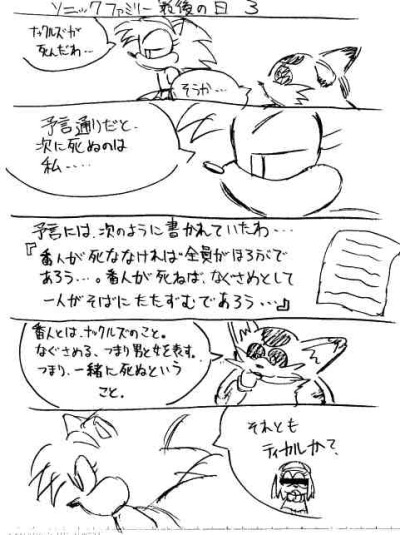 ソニックファミリー最後の日 3
ナックルズが
死んだわ…
そうか…
予言通りだと、
次に死ぬのは
私……
予言には、次のように書かれていたわ…
『番人が死ななければ全員がほろぶで
あろう…。番人が死ねば、なぐさめとして
一人がそばにたたずむであろう…』
番人とは、ナックルズのこと。
なぐさめる、つまり男と女を表す。
つまり、一緒に死ぬという
こと。
それとも
ティカルかて?